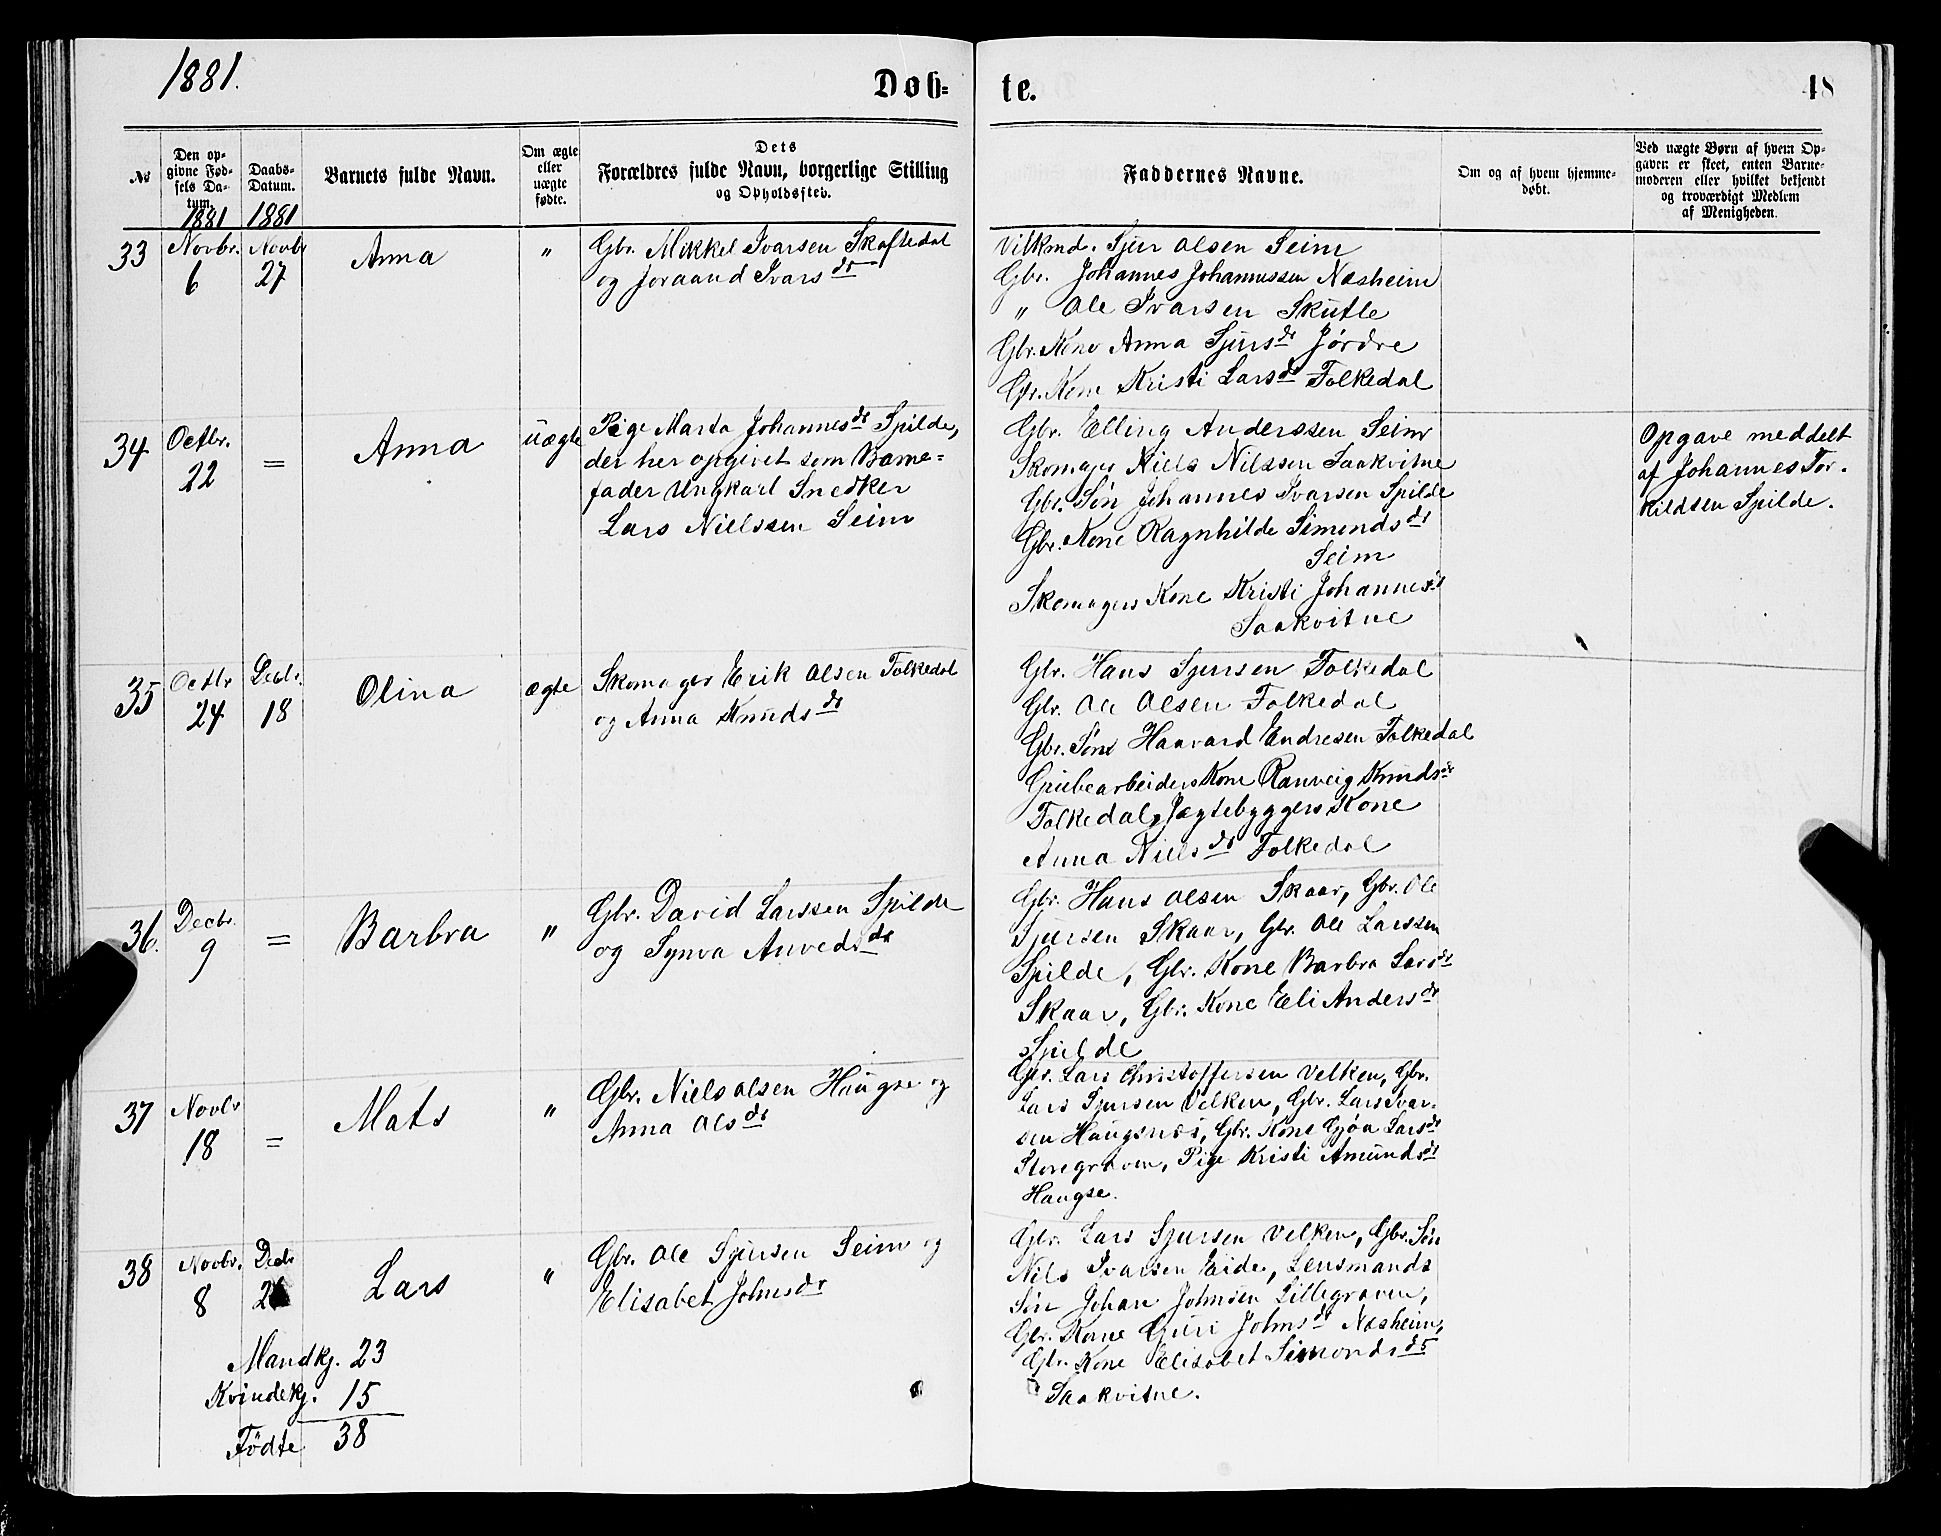 1881.
Døb=
te.
48
No
Den op-
givne Fød-
sels Da-
tum.
1881
Daabs-
Datum.
1881
Barnets fulde Navn.
Om ægte
eller
uægte
fødte.
Dets
Forældres fulde Navn, borgerlige Stilling
og Opholdssted.
Faddernes Navne.
Om og af hvem hjemme-
døbt.
Ved uægte Børn af hvem Op-
gaven er skeet, enten Barne-
moderen eller hvilket bekjendt
og troværdigt Medlem
af Menigheden.
33
Novbr.
6
Novbr
27
Anna
"
Gbr. Mikkel Ivarsen Skaftedal
og Joraand Ivarsdr
Vilkmd. Sjur Olsen Seim
Gbr. Johannes Johannessen Næsheim
" Ole Ivarsen Skutle
Gbr. Kone Anna Sjursdr Jørdre
Gbr. Kone Kristi Larsdr Folkedal
34
Octbr.
22
=
Anna
uægte
Pige Marta Johannesdr Spilde,
der her opgivet som Barne=
fader Ungkarl Snedker
Lars Nielssen Seim
Gbr. Elling Anderssen Seim
Skomager Niels Nilssen Saakvitne
Gbr. Søn Johannes Ivarsen Spilde
Gbr. Kone Ragnhilde Simondsdr
Seim
Skomagers Kone Kristi Johannesdr
Saakvitne
Opgave meddelt
af Johannes Tor-
kildsen Spilde.
35
Octbr
24
Decbr.
18
Olina
ægte
Skomager Erik Olsen Folkedal
og Anna Knudsdr
Gbr. Hans Sjursen Folkedal
Gbr. Ole Olsen Folkedal
Gbr. Søn Haavard Endresen Folkedal
Grubearbeiders Kone Ranveig Knudsdr
Folkedal, Jagtebyggers Kone
Anna Nielsdr Folkedal
36.
Decbr.
9
=
Barbra
"
Gbr. David Larssen Spilde
og Synva Anvedsdr
Gbr. Hans Olsen Skaar, Gbr. Ole
Sjursen Skaar, Gbr. Ole Larssen
Spilde, Gbr. Kone Barbra Larsdr
Skaar, Gbr. Kone Eli Andersdr
Spilde
37
Novbr
18
=
Mats
"
Gbr. Niels Olsen Haugse og
Anna Olsdr
Gbr. Lars Christoffersen Velken, Gbr.
Lars Sjursen Velken, Gbr. Lars Ivar-
sen Haugsnes, Gbr. Kone Gjøa Larsdr
Storegraven, Pige Kristi Amundsdr
Haugse.
38
Novbr.
8
Decbr
Lars
"
Gbr. Ole Sjursen Seim og
Elisabet Johnsdr
Gbr. Lars Sjursen Velken, Gbr. Søn
Nils Ivarsen Eide, Lensmands
Søn Johan Johnsen Lillegraven,
Gbr. Kone Guri Johnsdr Næsheim,
Gbr. Kone Elisabet Simondsdr
Saakvitne.
Mandkj. 23
Kvindekj. 15
Födte 38